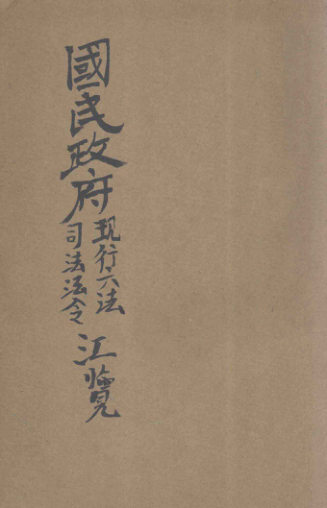 國民政府
現行六法
司法法令
江覽